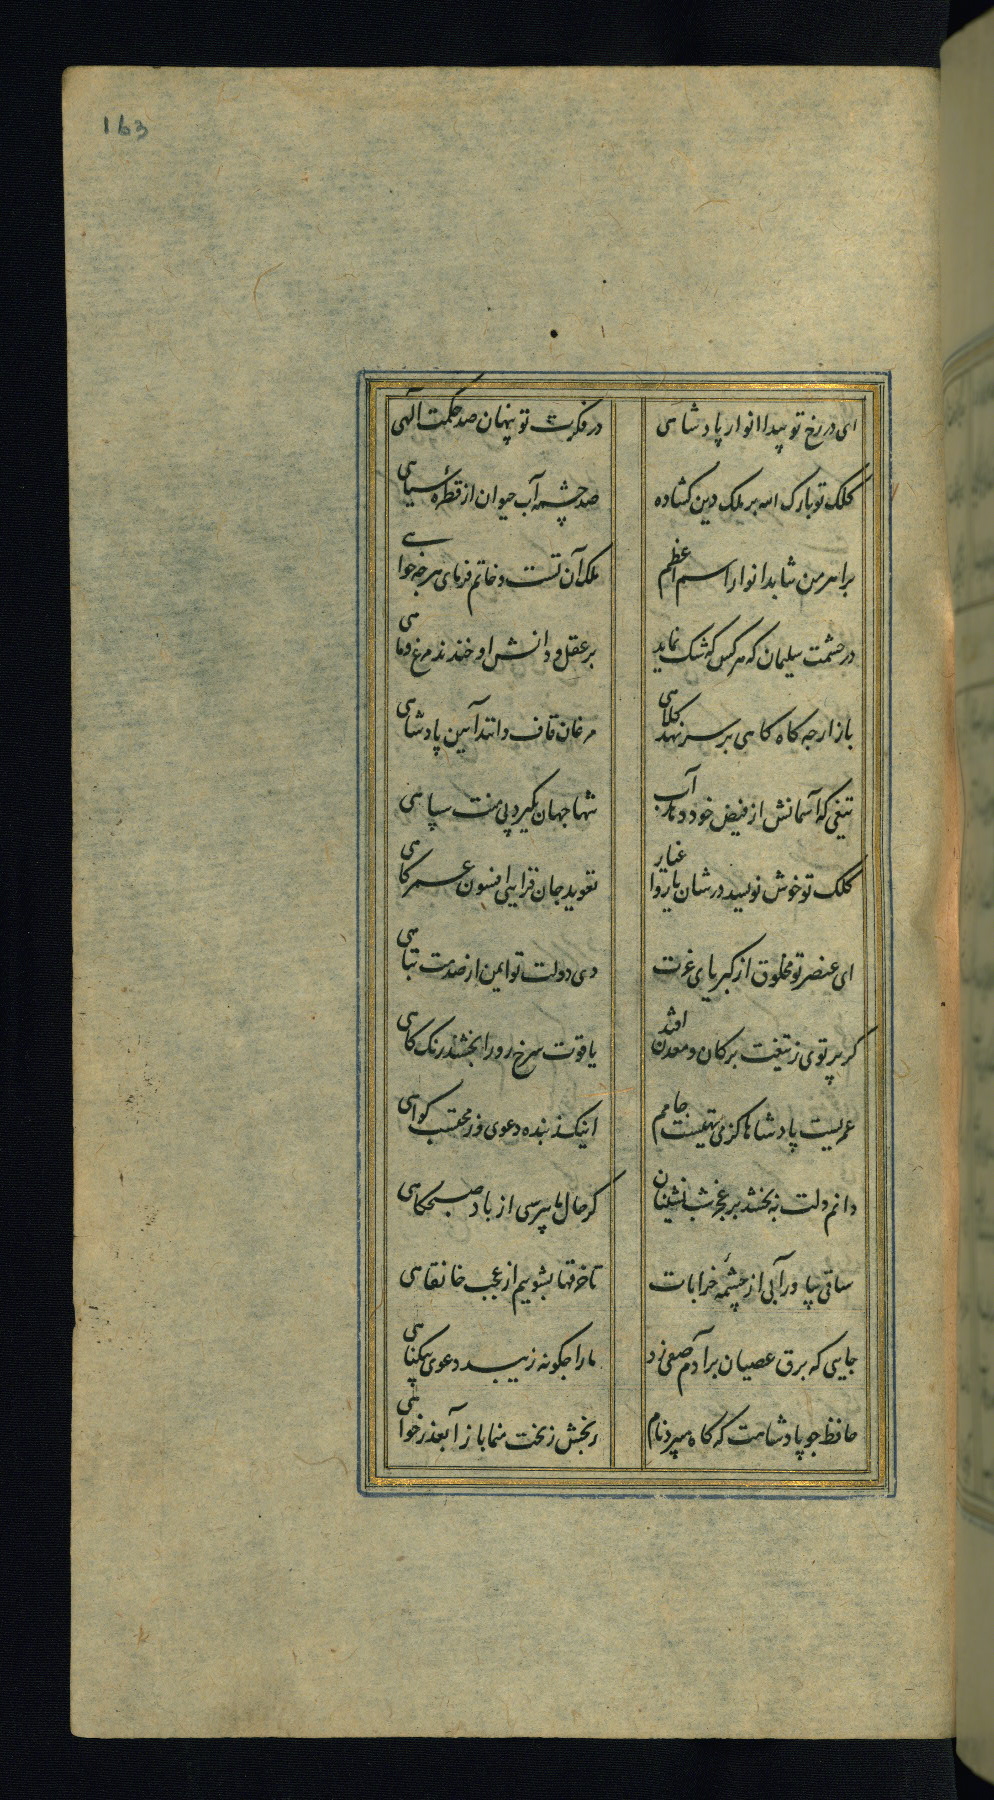 163
ای در رخ تو پیدا انوار پادشاهی در فکرت تو پنهان صد حکمت الهی
کلک تو بارک الله بر ملک دین کشاده صد چشمه آب حیوان از قطرهٔ سیاهی
بر اهرمن نتابد انوار اسم اعظم ملک آن تست و خاتم فرمای هر چه خواهی
در حشمت سلیمان که هر کس که شک نماید بر عقل و دانش او خندند مرغ و ماهی
باز ار چه کاه کاهی بر سر نهد کلاهی مرغان قاف دانند آیین پادشاهی
تیغی که آسمانش از فیض خود دهد آب تنها جهان بگیرد بی منت سپاهی
کلک تو خوش نویسد در شان یار و اغیار تعوید جان فزایی افسون عمر کاهی
ای عنصر تو مخلوق از کبریای عزت وی دولت تو ایمن از صدمت تباهی
کر پرتوی ز تیغت بر کان و معدن افتد یاقوت سرخ رو را بخشند رنک کاهی
عمریست پادشاها کز می تهیست جامم اینک ز بنده دعوی وز محتسب کواهی
دانم دلت به بخشد بر عجز شب نشینان کر حال ما بپرسی از باد صبحکاهی
ساقی بیاور آبی از چشمهٔ خرابات تا خرقها بشوییم از عجب خانقاهی
جایی که برق عصیان بر آدم صفی زد ما را چکونه زیبد دعوی بیکناهی
حافظ چو پادشاهت که کاه میبرد نام رنجش ز بخت منما باز آ بعذر خواهی